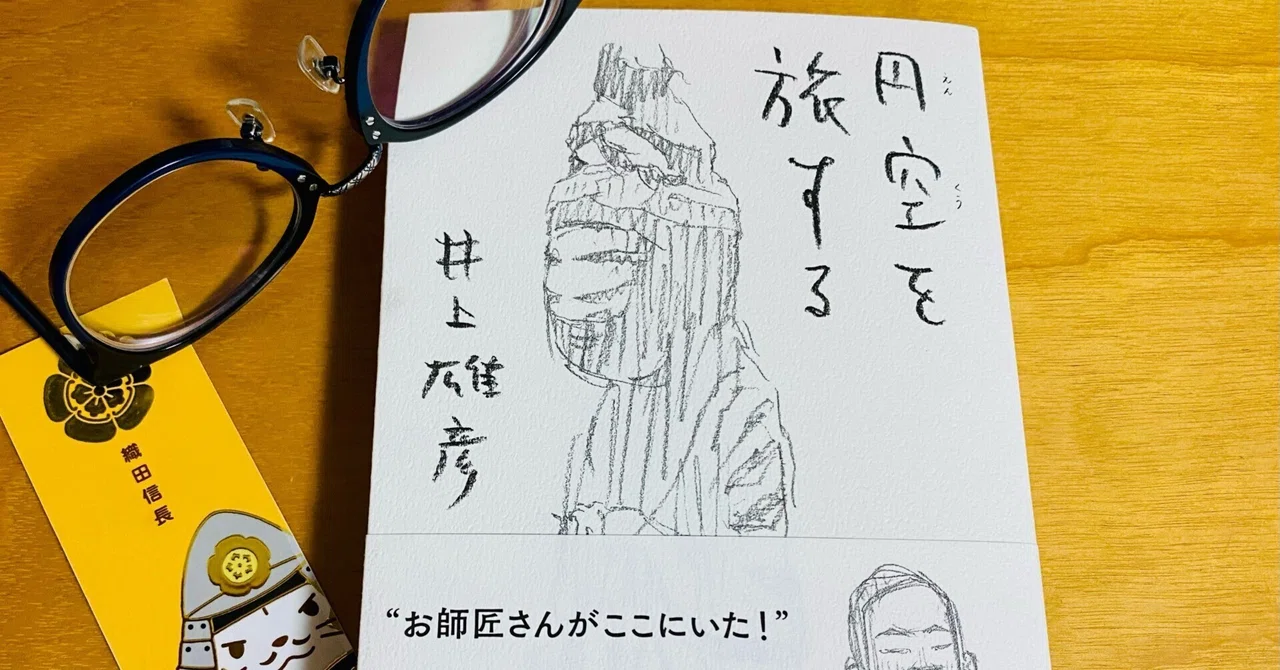 円空を
えん
くう
旅する
井上雄彦
“お師匠さんがここにいた！”
織田信長